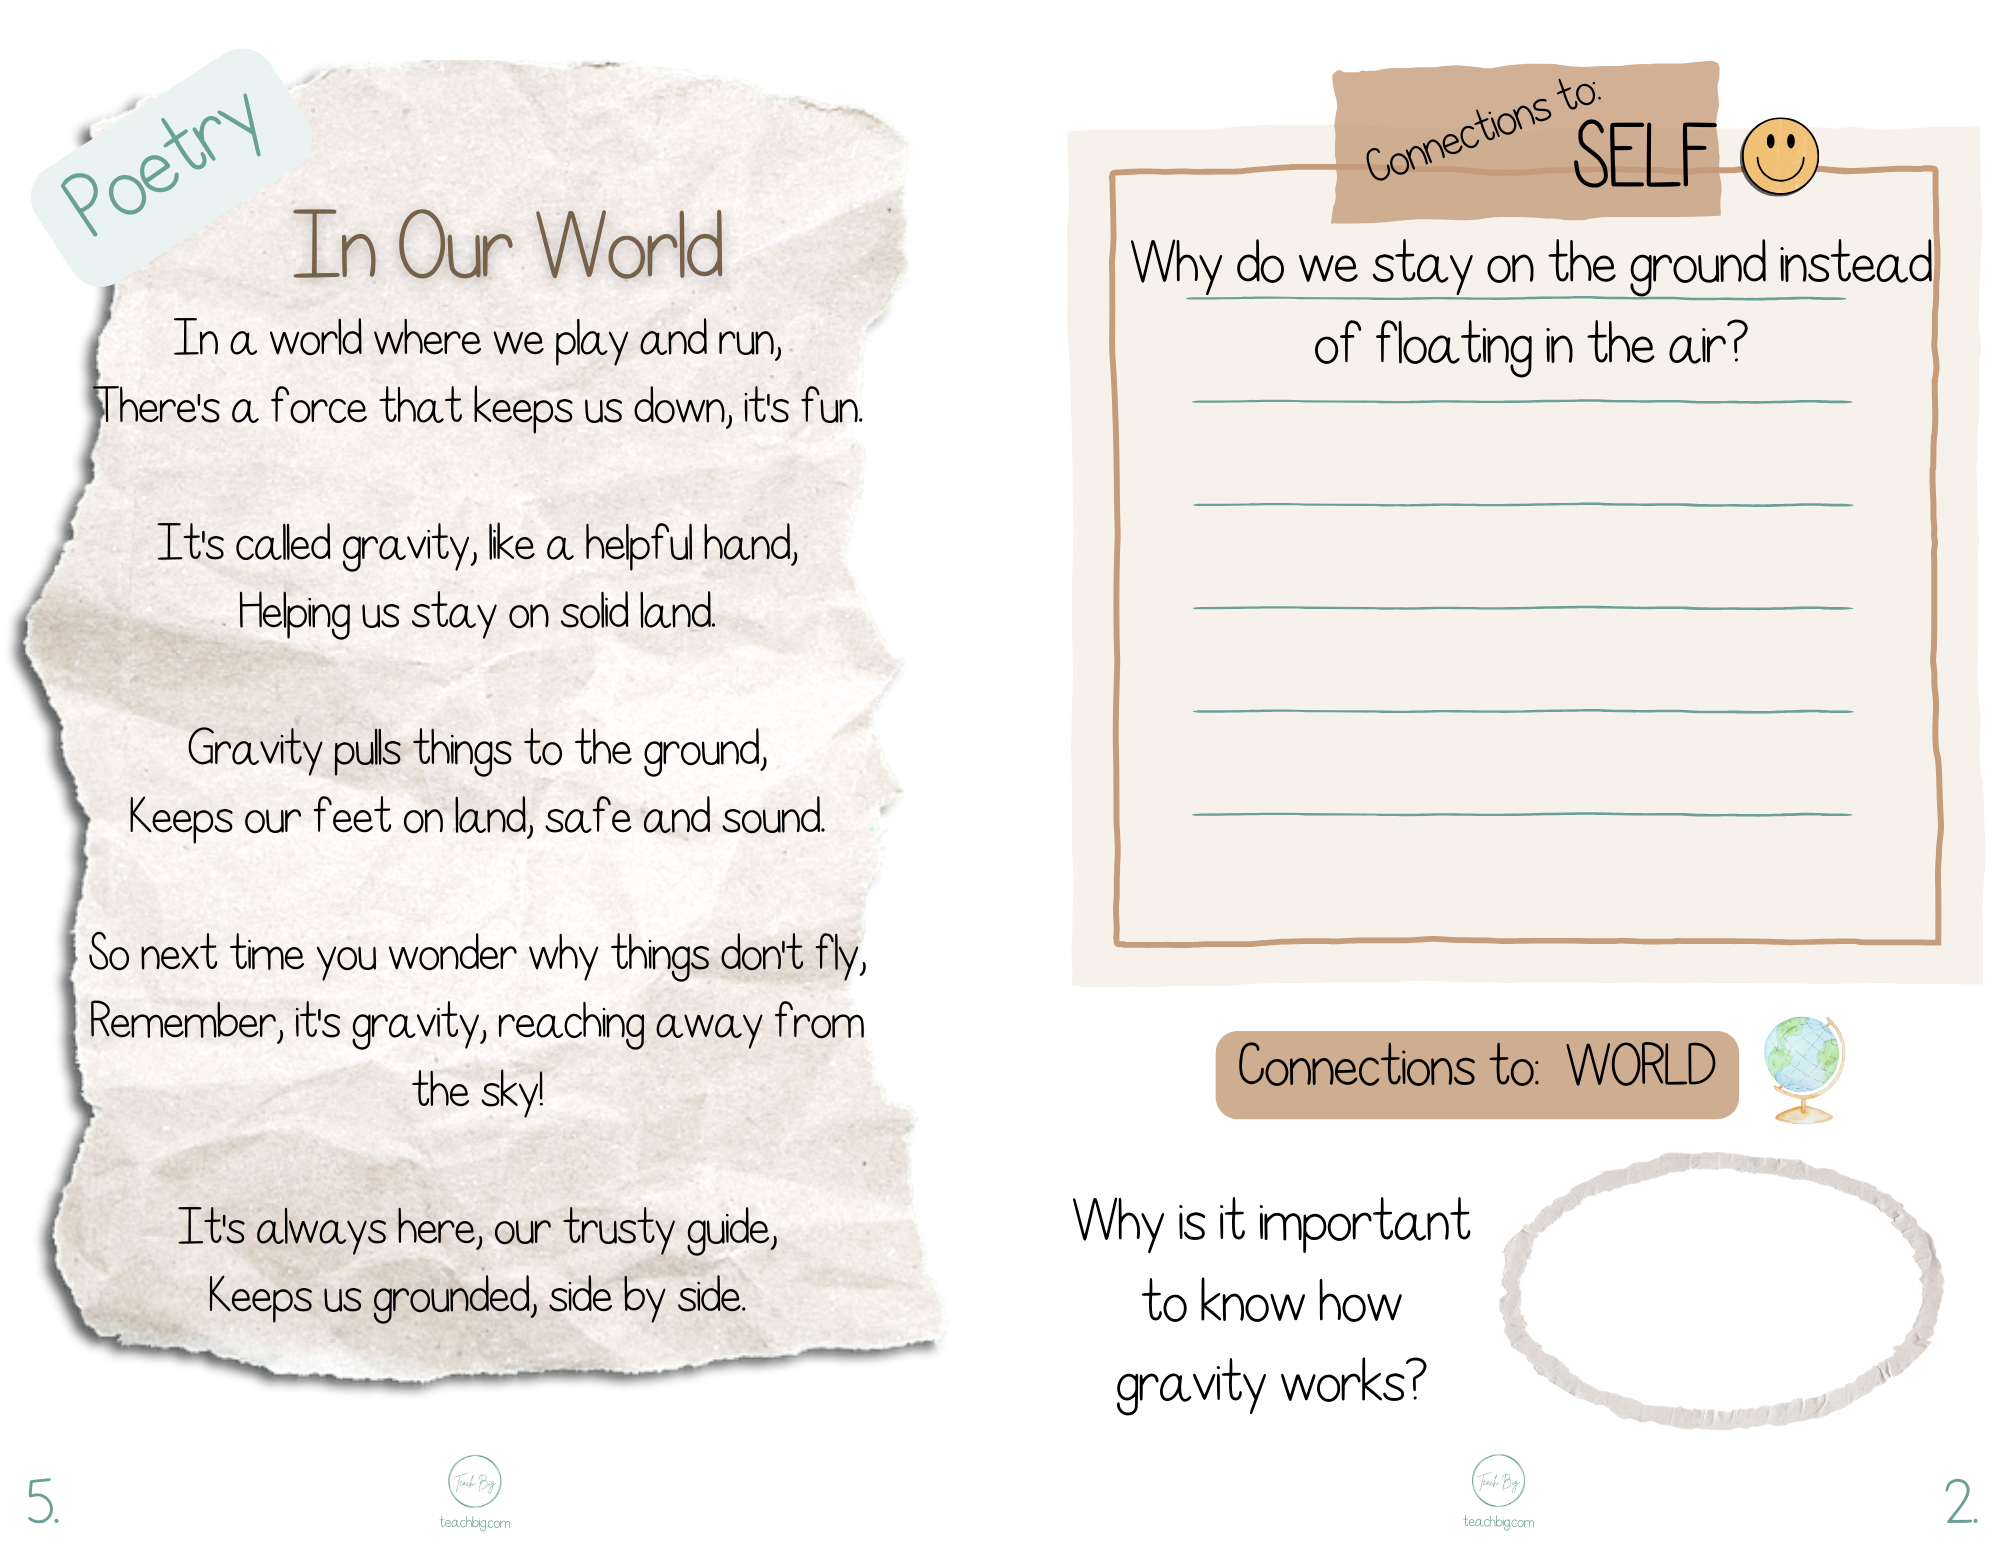 Poetry
In Our World
In a world where we play and run,
There's a force that keeps us down, it's fun.
It's called gravity, like a helpful hand,
Helping us stay on solid land.
Gravity pulls things to the ground,
Keeps our feet on land, safe and sound.
So next time you wonder why things don't fly,
Remember, it's gravity, reaching away from
the sky!
It's always here, our trusty guide,
Keeps us grounded, side by side.
Teach Big
teachbig.com
5.
Connections to:
SELF
Why do we stay on the ground instead
of floating in the air?
Connections to: WORLD
Why is it important
to know how
gravity works?
Teach Big
teachbig.com
2.